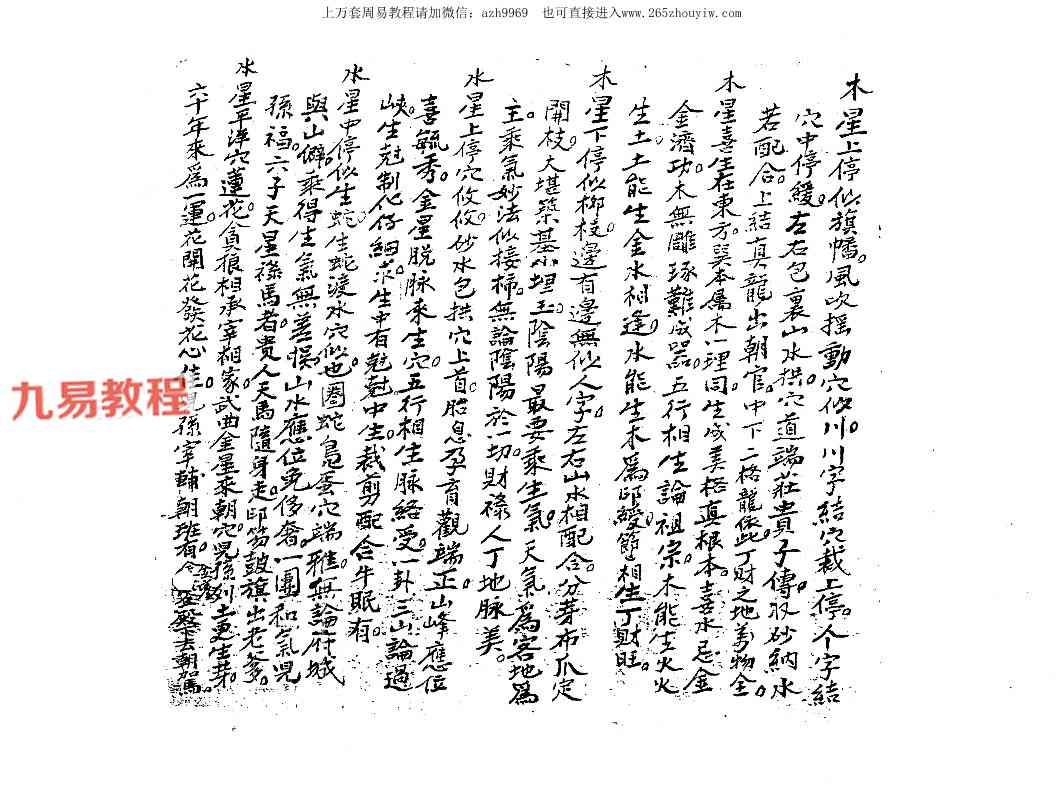 上万套周易教程请加微信：azh9969　也可直接进入www.265zhouyiw.com
木星上停似旗幡。風吹摇動穴似川。川字結穴裁上停。个字結
穴中停緩。左右包裹山水拱。穴道端莊貴子傳。収砂納水
若配合。上結真龍出朝官。中下二格龍依此。丁財之地萬物全。
木星喜生在東方。巽本屬木一理同。生成美格真根本。喜水忌金
金濟功。木無雕琢難成器。五行相生論祖宗。木能生火火
生土。土能生金水相逢。水能生木爲印綬。節相生丁財旺。
木星下停似柳枝。邊有邊無似人字。左右山水相配合。分芽布爪定
開枝。大堪築基小埋玉。陰陽最要乘生氣。天氣爲客地爲
主。乘氣妙法似接柿。無論陰陽於一切。財祿人丁地脉美。
水星上停穴攸攸。砂水包拱穴上首。胎息孕育觀端正。山峰應位
喜毓秀。金星脱脉来生穴。五行相生脉絡受。一卦三山論過
峽。生尅制化仔細求。生中有尅尅中生。裁剪配合牛眠有。
水星中停似生蛇。生蛇渡水穴似也。圈蛇鳬蛋穴端雅。無論府城
與山僻。乘得生氣無差悮。山水應位免侈奢。一團和氣児
孫福。六子天星祿馬者。貴人天馬隨身走。印笏鼓旗出老爹。
水星平洋穴蓮花。貪狼相承宰相家。武曲金星来朝穴。児孫列土更生芽。
六十年来爲一運。花開花發花心佳。孫宰輔朝班有。下去朝
九易教程